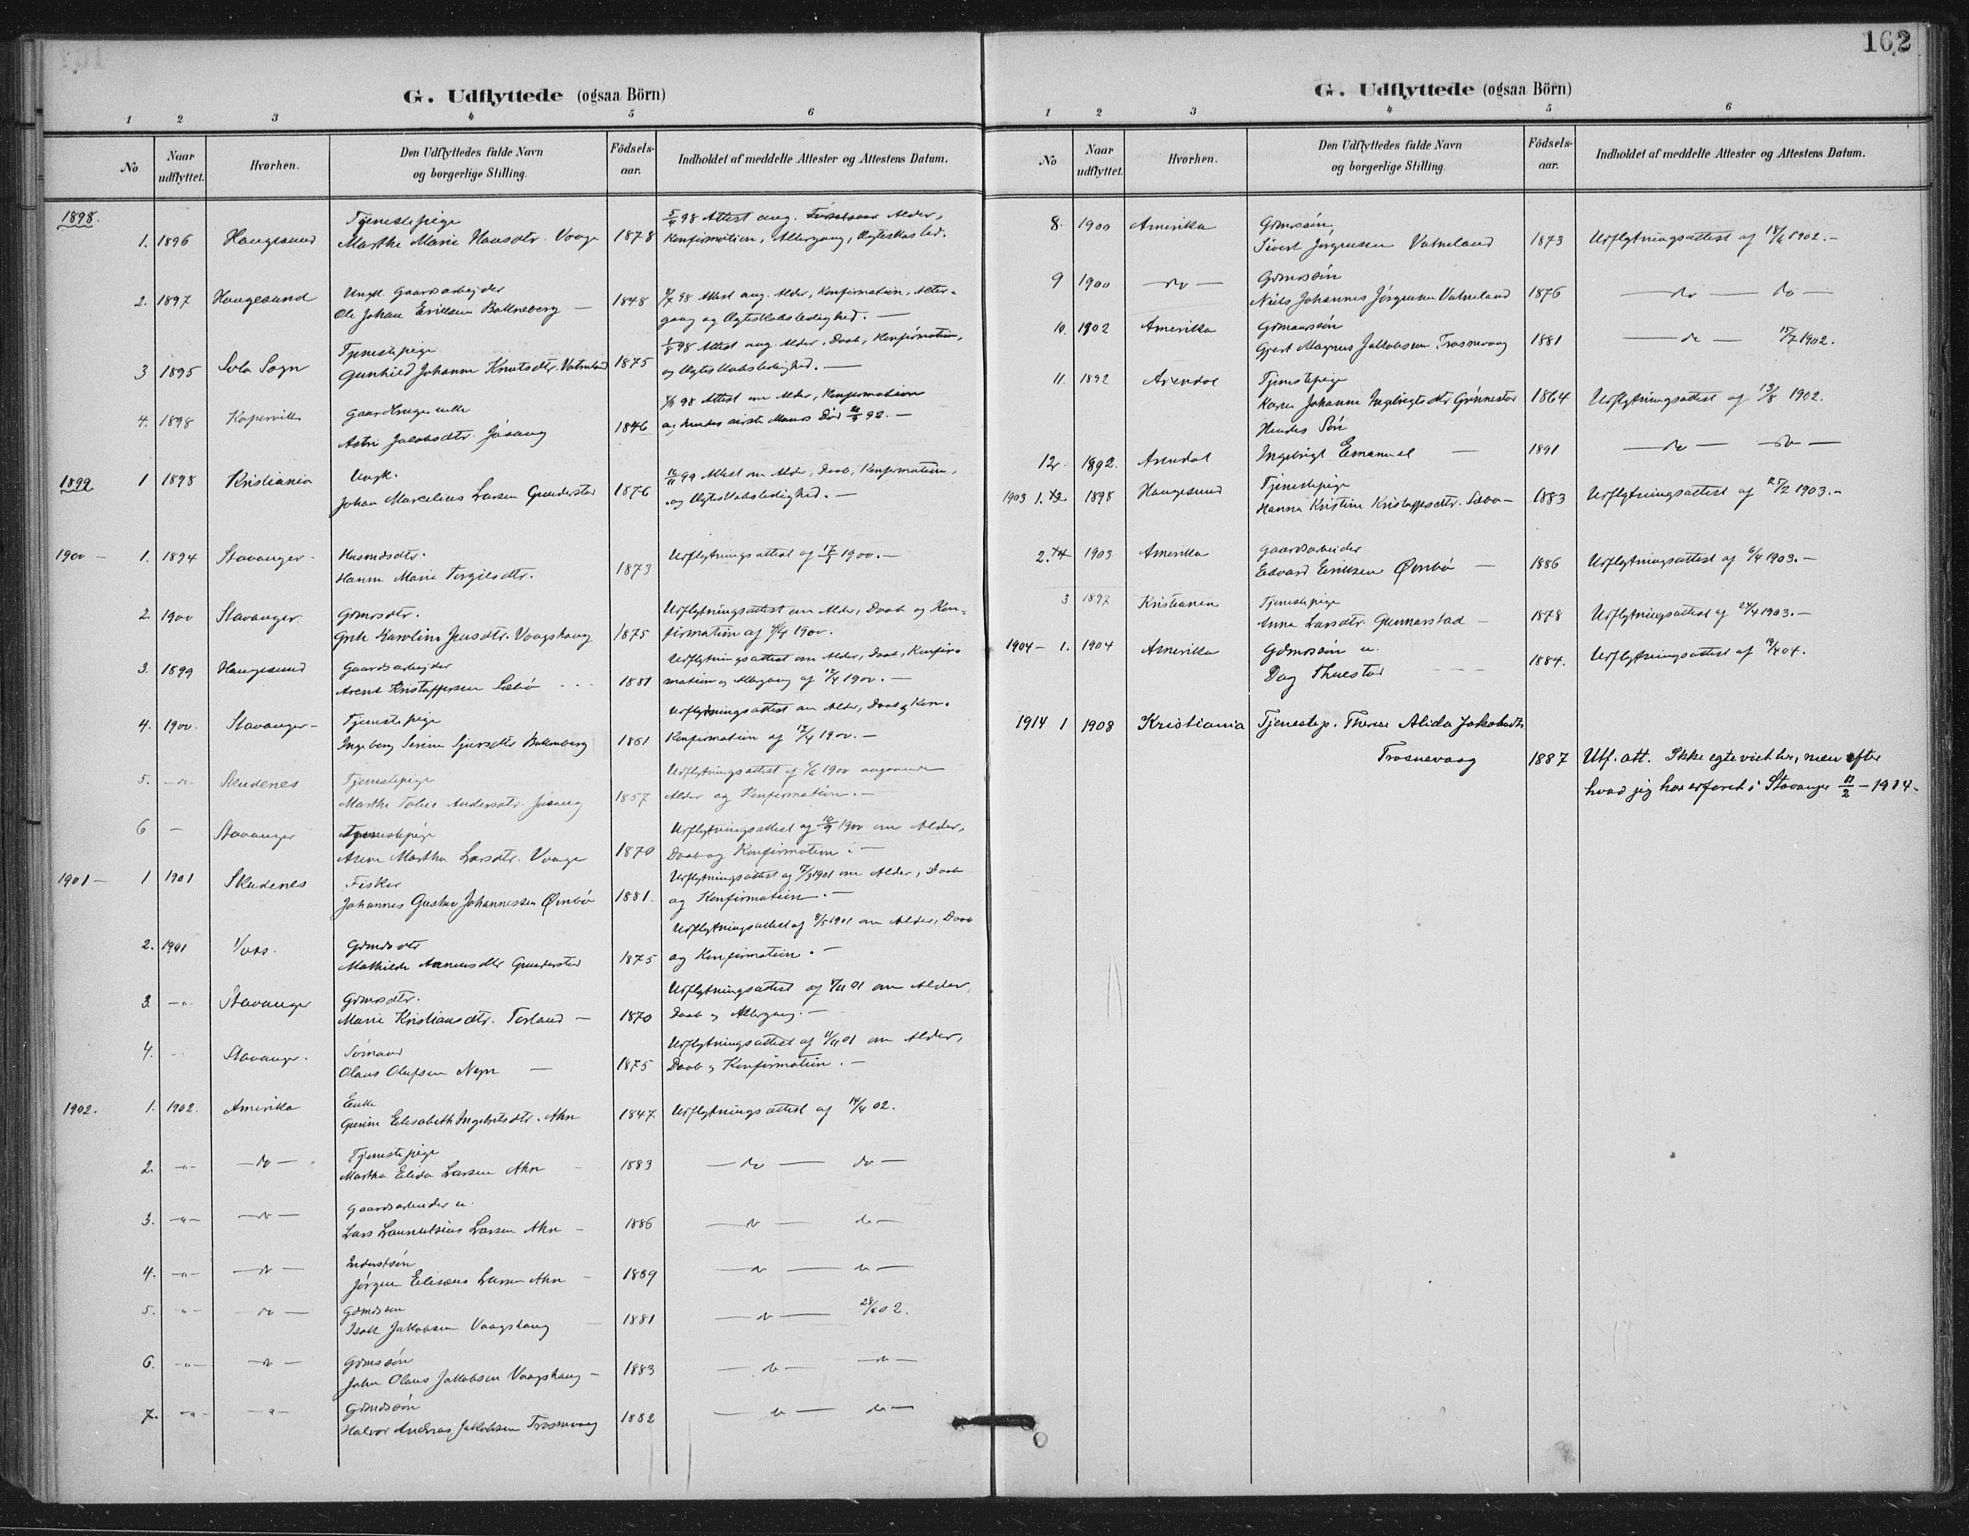 162
G. Udflyttede (ogsaa Börn)
1 2 3 4 5 6
No
Naar udflyttet.
Hvorhen.
Den Udflyttedes fulde Navn og borgerlige Stilling.
Födsels-aar.
Indholdet af meddelte Attester og Attestens Datum.
1898.
Tjenestepige
1. 1896 Haugesund Marthe Marie Hansdtr. Vaage 1878 Konfirmation, Altergang,
Ungk. Gaardsarbejder
2. 1897 Haugesund Ole Johan Eriksen 1848 98 Attest ang. Alder, Konfirmation, Alter-
gang og Ægteskabsledighed. —
Tjenestepige
3 1895 Sola Sogn Gunhild Johanne Knutsdtr. Vatneland 1875 98 Attest ang. Alder, Daab, Konfirmation,
og Ægteskabsledighed. —
4. 1898 Kopervik 1846 98 Attest om Alder, Konfirmation
Astri Jakobsdtr. Jøsang og hendes sidste Mands Död
1899 1 1898 Kristiania Ungk.
Johan Marcelius Larsen 1876 99 Attest om Alder, Daab, Konfirmation,
og Ægteskabsledighed. —
1900 — 1. 1894 Stavanger — Husmdsdtr. Udflytningsattest af 1900. —
Hanne Marie Torgilsdtr. 1873
2. 1900 Stavanger Gdmdsdtr. Udflytningsattest om Alder, Daab og Kon-
Karoline Jensdtr. Vaagshaug 1875 firmation af 1900.
3. 1899 Haugesund Gaardsarbejder Udflytningsattest om Alder, Daab, Konfir-
Kristoffersen Sæbø 1881 mation og Altergang af 1900. —
4. 1900 Stavanger — Tjenestepige Udflytningsattest om Alder, Daab og Kon-
Ingeborg Serine 1861 Konfirmation af 17/4 1900. —
5. —"— Skudenes Tjenestepige Udflytningsattest af 1900 angaaende
Marthe Andersdtr. Jøsang 1857 Alder og Konfirmation. —
6 — Stavanger Tjenestepige Udflytningsattest af 1900 om Alder,
Martha Larsdtr. Vaage 1870 Daab og Konfirmation. —
1901 — 1 1901 Skudenes Fisker Udflytningsattest af 1901 om Alder, Daab
Johannes Gustav Johannessen Ørnbø 1881. og Konfirmation. —
2. 1901 Udflytningsattest af 8/5 1901 om Alder, Daab
Mathilde 1875 og Konfirmation. —
3. —"— Stavanger Gdmdsdtr. Udflytningsattest af 01 om Alder,
Marie Kristiansdtr. — 1870 Daab og Altergang. —
4. Stavanger. Sömand Udflytningsattest af 01 om Alder,
Olaus Olufsen — 1875 Daab og Konfirmation. —
1902. 1. 1902. Amerika Enke
Elisabeth 1847 Udflytningsattest af 14/4 02.
2. —"— —do— Tjenestepige
Martha Elida Larsen 1883 —do— do—
3. —"— —do— Gaardsarbeider u.
Lars Larsen 1886 —do— do—
4. —"— —do— Inderstsön
Jörgen Elisæus Larsen 1889 —do— do—
5. —"— —do— Gdmdssön
Jakobsen Vaagshaug 1881 —do— 02.
6. —"— —do— Gdmdssön
John Olaus Jakobsen Vaagshaug — 1883 —do— do—
7. —"— —"— Gdmdssön
Halvor Andreas Jakobsen Trosnevaag 1882 —do— do—
G. Udflyttede (ogsaa Börn)
1 2 3 4 5 6
No
Naar udflyttet.
Hvorhen.
Den Udflyttedes fulde Navn og borgerlige Stilling.
Födsels-aar.
Indholdet af meddelte Attester og Attestens Datum.
8. 1900 Amerika Gdmdssön,
Sivert Jørgensen Vatneland 1873 Udflytningsattest af 1902. —
9 1900 —do— Gdmdssön
Niels Johannes Jørgensen Vatneland 1876 —do— do—
10. 1902 Amerika
Gjert Magnus Jakobsen Trosnevaag 1881 —do— 15/7 1902.
11. 1892 Arendal Tjenestepige
Karen Johanne Ingebrigtsdtr Grønnestad 1864 Udflytningsattest af 13/8 1902.
Hendes Sön
12. 1892. Arendal Ingebrigt Emanuel — 1891 —do— do—
1903 1. 1898 Haugesund Tjenestepige
Hanna Kristine Kristoffersdtr. Sæbø — 1883 Udflytningsattest af 1903. —
2. 1903 Amerika Gaardsarbeider
Edvard Eriksen Ørnbø — 1886 Udflytningsattest af 6/4 1903. —
3 Kristiania Tjenestepige
Anne Larsdtr. Gunnarstad — 1878 Udflytningsattest af 1903. —
1904 — 1. 1904 Amerika Gdmdssön u.
Dag 1884. Udflytningsattest af 04.
1914 1 1908 Kristiania Tjenestep. Therese Alida Jakobsdtr
Trosnevaag 1887 Utf. att. Ikke egteviet her, men efter
hvad jeg har erfaret i Stavanger 11/2 — 1914.